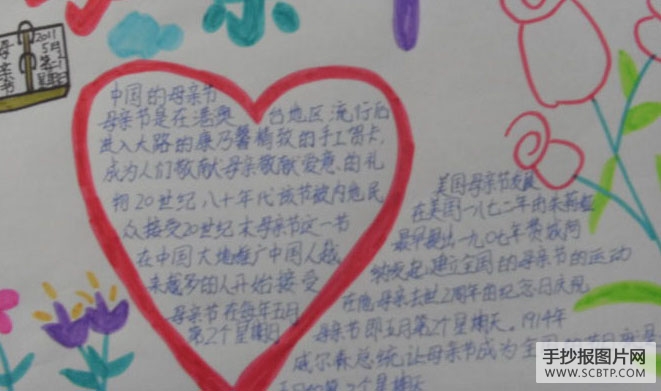 母亲节
2011
5月
第二个
星期日
中国的母亲节
母亲节是在港奥 台地区流行后
进入大路的康乃馨精致的手工贺卡,
成为人们敬献母亲敬献爱意的礼
物20世纪八十年代该节被内地民
众接受20世纪末母亲节这一节
在中国大地推广中国人越
来越多的人开始接受
母亲节在每年五月
第2个星期日
美国母亲节发展
在美国一八七二年由朱莉娅
最早提出一九〇七年费城阿
纳发起建立全国的母亲节的运动
在她母亲去世2周年的纪念日庆祝
母亲节即五月第2个星期天。1914年
威尔森总统让母亲节成为全
第2个星期天
手抄报图片网
WWW.SCBTP.COM